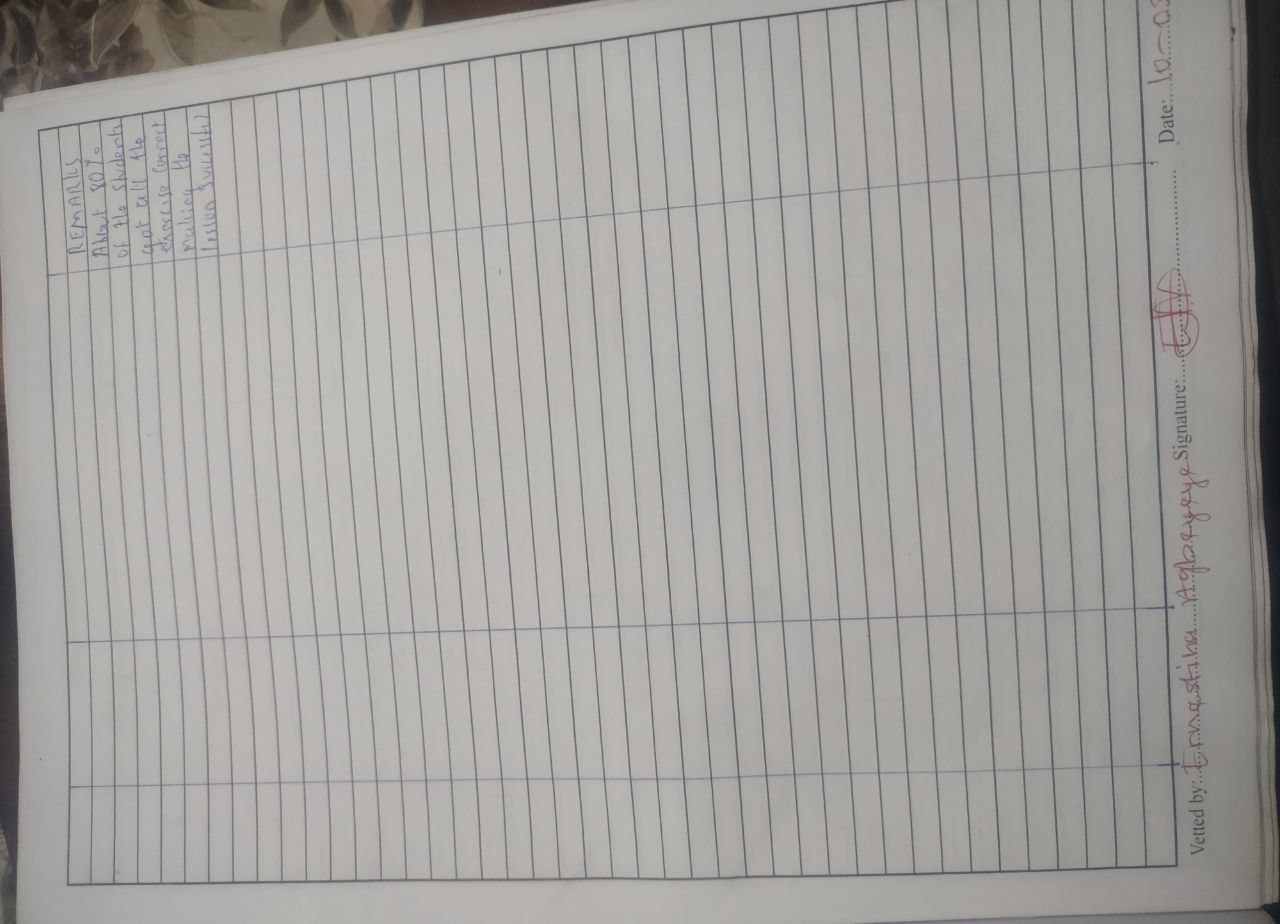 REMARKS
About 80%
of the students
got all the
exercise correct
making the
lesson successful
Vetted by: Ernestina Agbeyeye Signature: Date: 10-03